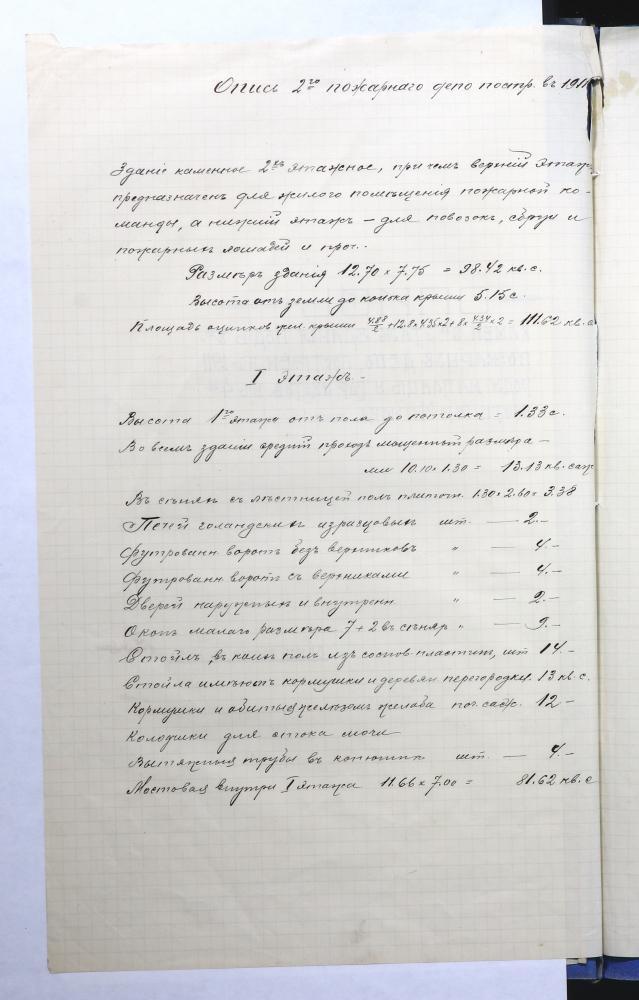 Опись 2го пожарнаго депо постр. въ 191
Зданіе каменное 2хъ этажное, при чемъ верхній этаж
предназначенъ для жилого помѣщенія пожарной ко-
манды, а нижній этажъ – для повозокъ, сбруи и
пожарныхъ лошадей и проч..
Размѣръ зданія 12.70 x 7.75 = 98.42 кв. с.
Высота отъ земли до конька крыши 5.15 с.
Площадь оцинков. жел. крыши 4.88/2 + 12.8 x 4.35 x 2 + 8 x 4.34/2 x 2 = 111.62 кв. с
I этажъ –
Высота 1го этажа отъ пола до потолка = 1.33 с.
Во всемъ зданіи средній проходъ мощенный размѣра –
ми 10.10 x 1.30 = 13.13 кв. саж
Въ сѣняхъ съ лѣстницей полъ плиточн. 1.30 x 2.60 = 3.38
Печей голандскихъ изразцовыхъ шт. — 2.–
Футрованн воротъ безъ верхниковъ " — 4.–
Футрованн воротъ съ верхниками " — 4.–
Дверей наружныхъ и внутренн. " — 2.–
Оконъ малаго размѣра 7 + 2 въ сѣняхъ " — 9.–
Стойлъ, въ коихъ полъ изъ соснов. пластинъ, шт 14.–
Стойла имѣютъ кормушки и деревян. перегородки. 13 кв. с.
Кормушки и обитыя желѣзомъ желоба пог. саж. 12 –
Колодцики для стока мочи
Вытяжныя трубы въ конюшнѣ шт. — 4.–
Мостовая внутри I этажа 11.66 x 7.00 = 81.62 кв. с